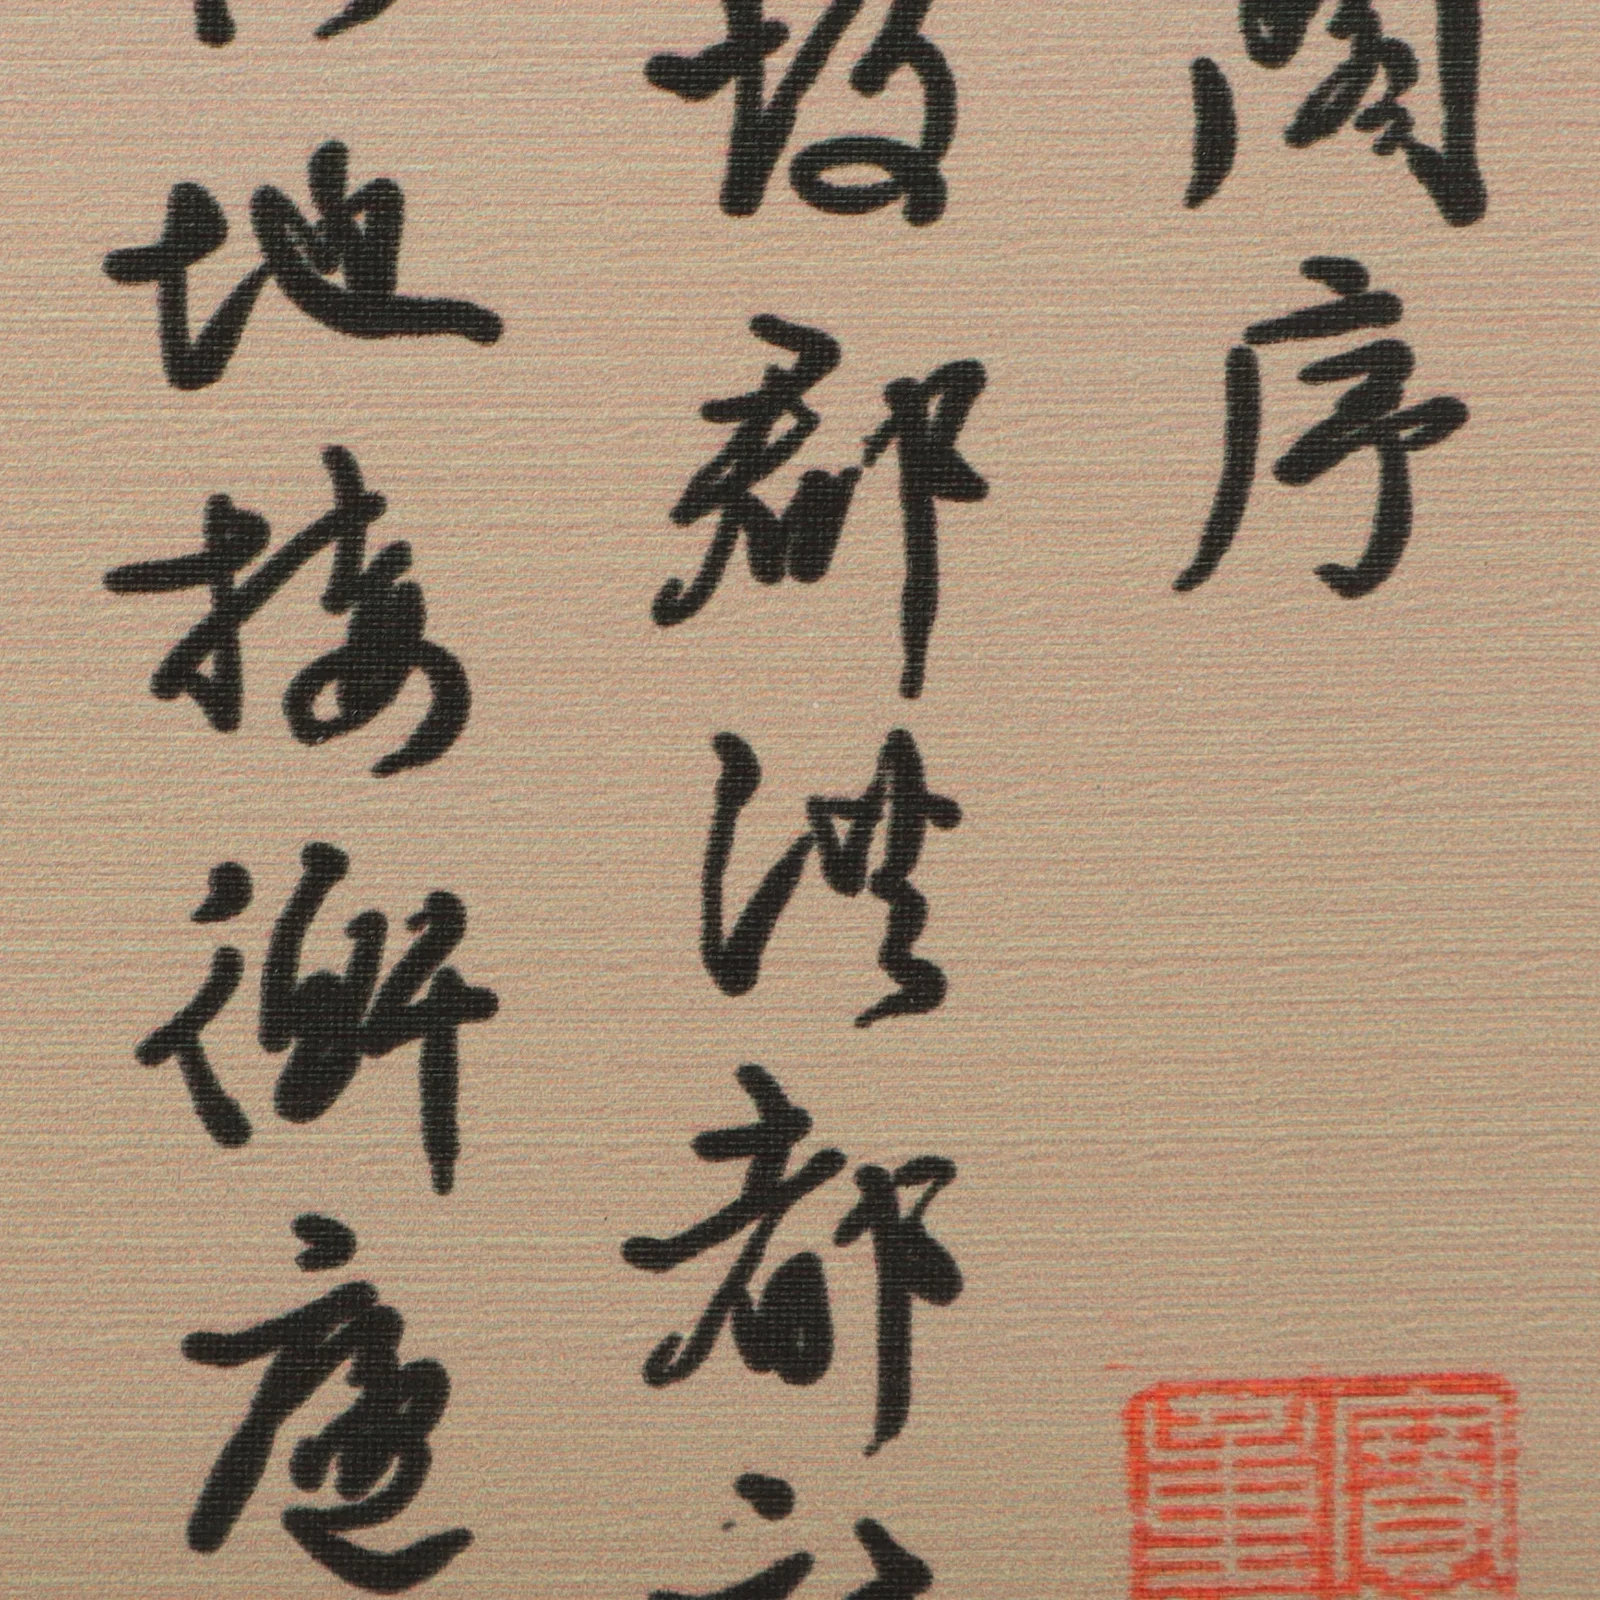 閣序
故郡洪都
地接衡廬